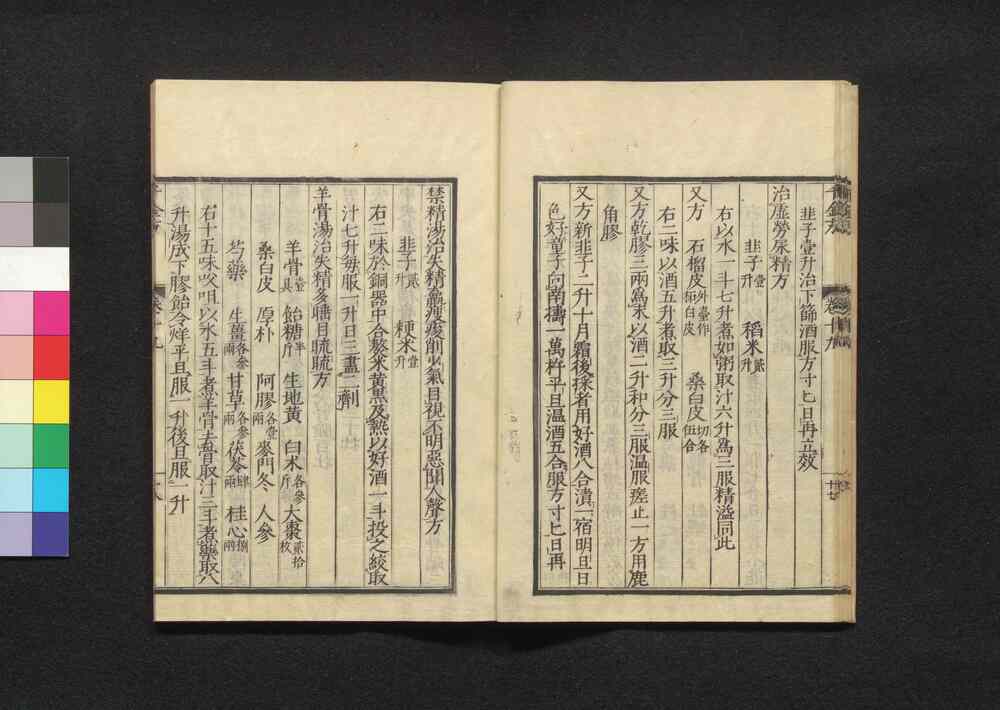 韭子壹升治下篩酒服方寸匕日再立效
治虛勞尿精方
韭子貳升 稻米參升
右以水一斗七升煮如粥取汁六升爲三服精溢同此
又方 石榴皮 桑白皮切各伍合
右二味以酒五升煮取三升分三服
又方乾膠三兩爲末以酒二升和分三服温服瘥止一方用鹿
角膠
又方新韭子二升十月霜後採者用好酒八合漬一宿明旦日
色好童子向南擣一萬杵平旦温酒五合服方寸匕日再
禁精湯治失精羸瘦酸削少氣目視不明惡聞人聲方
韭子貳升 粳米壹升
右二味於銅器中合熬米黃黑及熱以好酒一斗投之絞取
汁七升每服一升日三盡二劑
羊骨湯治失精多睡目䀮䀮方
羊骨壹具 飴糖半斤 生地黃 白朮各參斤 大棗貳拾枚
桑白皮 厚朴 阿膠各壹兩 麥門冬 人參
芍藥 生薑各參兩 甘草各參兩 茯苓肆兩 桂心捌兩
右十五味㕮咀以水五斗煮羊骨去骨取汁三斗煮藥取八
升湯成下膠飴令烊平旦服一升後旦服一升